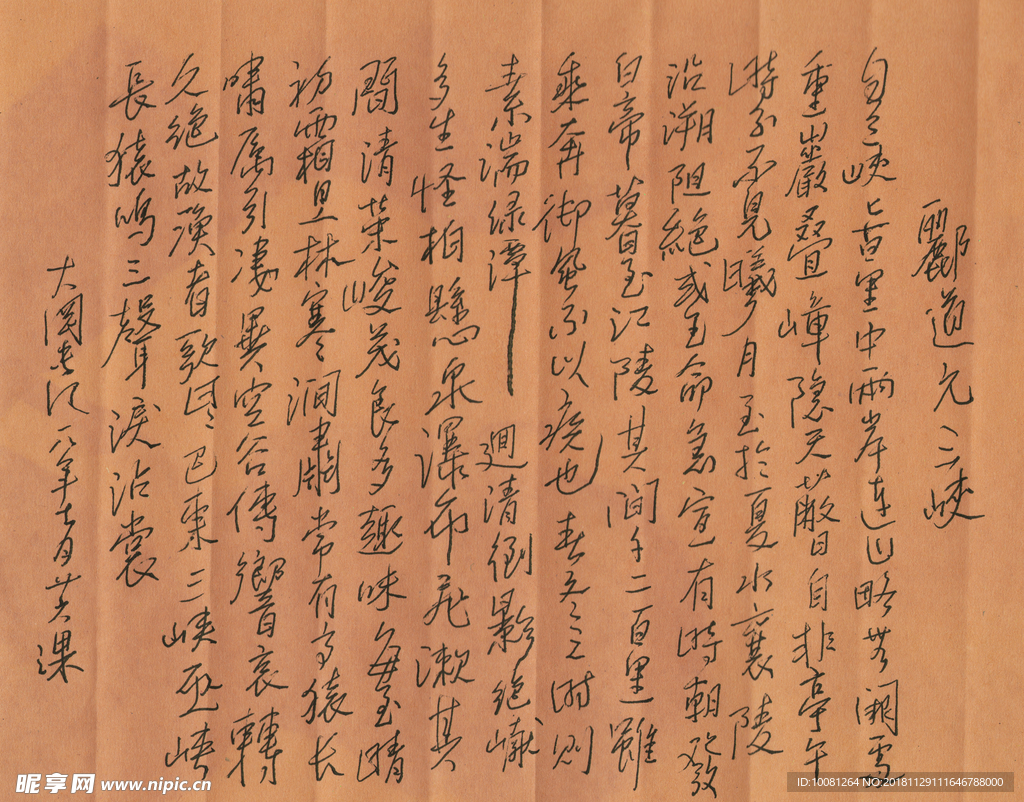 酈道元三峽
自三峽七百里中兩岸連山略無闕處
重巖疊嶂隱天蔽日自非亭午
時分不見曦月至於夏水襄陵
沿溯阻絕或王命急宣有時朝發
白帝暮至江陵其間千二百里雖
乘奔御風不以疾也春冬之時則
素湍綠潭 迴清倒影絕巘
多生怪柏懸泉瀑布飛漱其
間清榮峻茂良多趣味每至晴
初霜旦林寒澗肅常有高猿長
嘯屬引凄異空谷傳響哀轉
久絕故漁者歌曰巴東三峽巫峽
長猿鳴三聲淚沾裳
八年七月廿六課
昵享网 www.nipic.cn
ID:10081264 NO:20181129111646788000